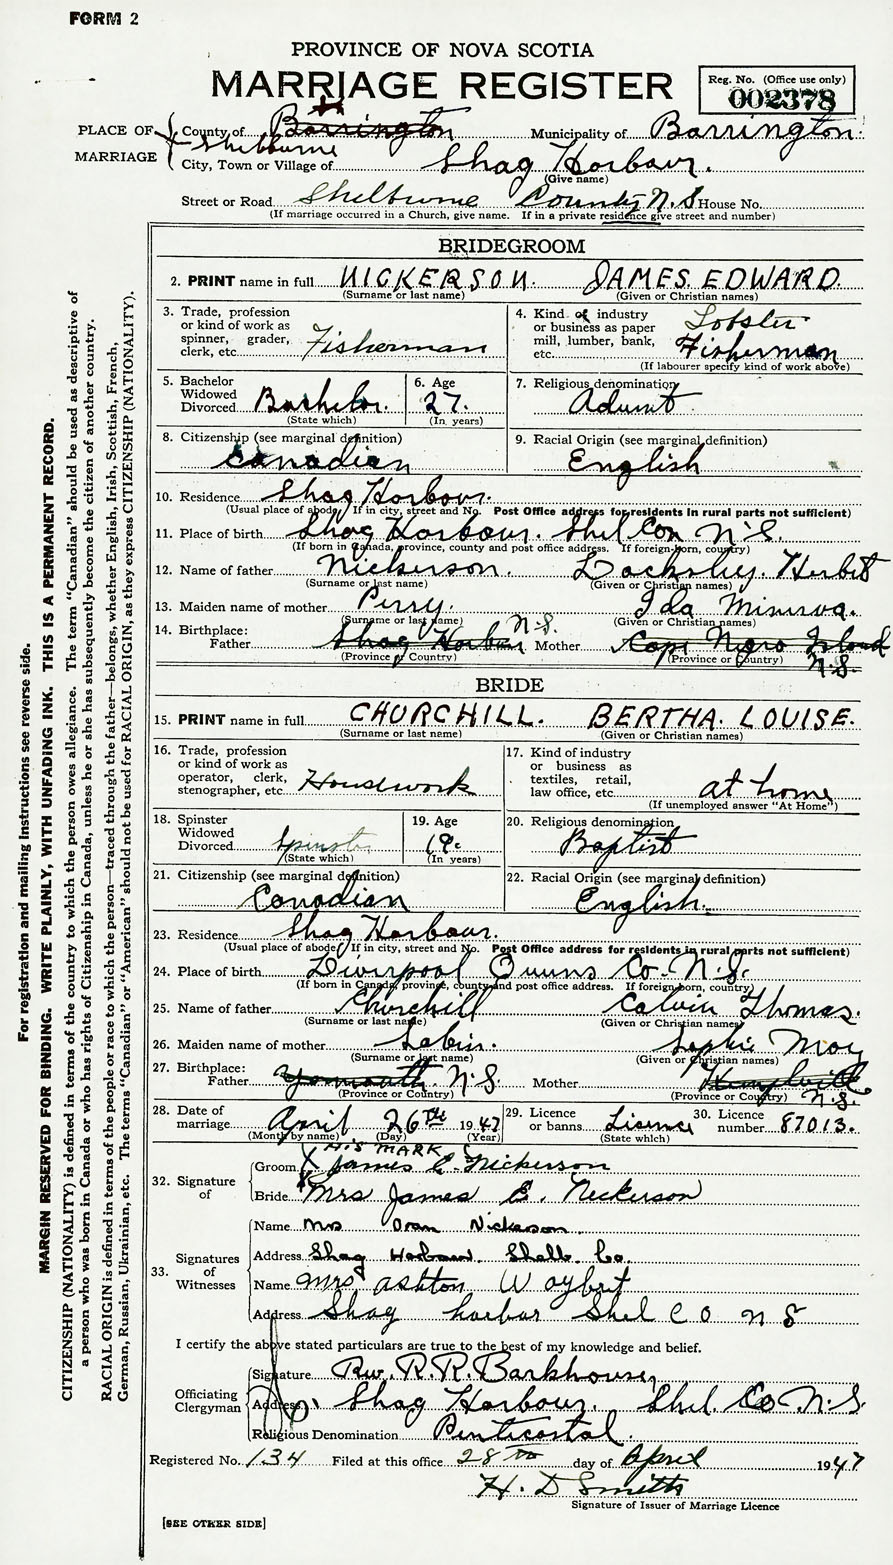 FORM 2
PROVINCE OF NOVA SCOTIA
MARRIAGE REGISTER
Reg. No. (Office use only)
002378
PLACE OF MARRIAGE
County of Barrington Shelburne Municipality of Barrington.
City, Town or Village of Shag Harbour.
(Give name)
Street or Road Shelburne County N.S House No.
(If marriage occurred in a Church, give name. If in a private residence give street and number)
BRIDEGROOM
2. PRINT name in full NICKERSON. JAMES. EDWARD.
(Surname or last name) (Given or Christian names)
3. Trade, profession or kind of work as spinner, grader, clerk, etc. Fisherman
4. Kind of industry or business as paper mill, lumber, bank, etc. Lobster Fisherman
(If labourer specify kind of work above)
5. Bachelor Widowed Divorced Bachelor.
(State which)
6. Age 27.
(In years)
7. Religious denomination
8. Citizenship (see marginal definition) Canadian
9. Racial Origin (see marginal definition) English
10. Residence Shag Harbour.
(Usual place of abode. If in city, street and No. Post Office address for residents in rural parts not sufficient)
11. Place of birth Shag Harbour. Shel Con N.S.
(If born in Canada, province, county and post office address. If foreign-born, country)
12. Name of father Nickerson Locksley. Herbert
(Surname or last name) (Given or Christian names)
13. Maiden name of mother Perry. Ida Minerva.
(Surname or last name) (Given or Christian names)
14. Birthplace: Father Shag Harbour N.S. Mother Cape Negro Island N.S.
(Province or Country) (Province or Country)
BRIDE
15. PRINT name in full CHURCHILL. BERTHA. LOUISE.
(Surname or last name) (Given or Christian names)
16. Trade, profession or kind of work as operator, clerk, stenographer, etc. Housework
17. Kind of industry or business as textiles, retail, law office, etc. at home
(If unemployed answer "At Home")
18. Spinster Widowed Divorced Spinster
(State which)
19. Age 19.
(In years)
20. Religious denomination Baptist
21. Citizenship (see marginal definition) Canadian
22. Racial Origin (see marginal definition) English.
23. Residence Shag Harbour.
(Usual place of abode. If in city, street and No. Post Office address for residents in rural parts not sufficient)
24. Place of birth Liverpool Queens Co. N.S.
(If born in Canada, province, county and post office address. If foreign-born, country)
25. Name of father Churchill Calvin Thomas.
(Surname or last name) (Given or Christian names)
26. Maiden name of mother Sophie May
(Surname or last name) (Given or Christian names)
27. Birthplace: Father Yarmouth. N.S. Mother N.S.
(Province or Country) (Province or Country)
28. Date of marriage April 26th 1947
(Month by name) (Day) (Year)
29. Licence or banns Lisence
(State which)
30. Licence number 87013.
32. Signature of
HIS MARK
Groom X James E. Nickerson
Bride Mrs James E. Nickerson
33. Signatures of Witnesses
Name Mrs Oran Nickerson
Address Shag Harbour Shelb. Co.
Name Mrs Ashton
Address Shag harbor Shel C O N S
I certify the above stated particulars are true to the best of my knowledge and belief.
Officiating Clergyman
Signature Rev. R.R. Barkhouse
Address Shag Harbour. Shel. Co N.S.
Religious Denomination Penticostal.
Registered No. 134 Filed at this office 28th day of April 1947
H. D Smith
Signature of Issuer of Marriage Licence
[SEE OTHER SIDE]
For registration and mailing instructions see reverse side.
MARGIN RESERVED FOR BINDING. WRITE PLAINLY, WITH UNFADING INK. THIS IS A PERMANENT RECORD.
CITIZENSHIP (NATIONALITY) is defined in terms of the country to which the person owes allegiance. The term "Canadian" should be used as descriptive of
a person who was born in Canada or who has rights of Citizenship in Canada, unless he or she has subsequently become the citizen of another country.
RACIAL ORIGIN is defined in terms of the people or race to which the person—traced through the father—belongs, whether English, Irish, Scottish, French,
German, Russian, Ukrainian, etc. The terms "Canadian" or "American" should not be used for RACIAL ORIGIN, as they express CITIZENSHIP (NATIONALITY).